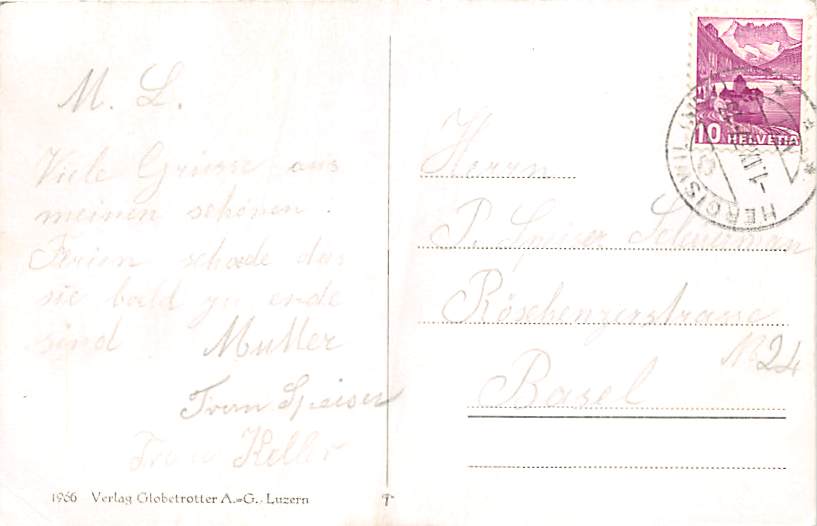 M. L.
Viele Grüsse aus
meinen schönen
Ferien schade das
sie bald zu ende
sind Mutter
Frau Speiser
Frau Keller
1966 Verlag Globetrotter A.=G., Luzern
10 HELVETIA
HERGISWIL
Herrn
P. Speiser
Röschenzerstrasse
No 24
Basel